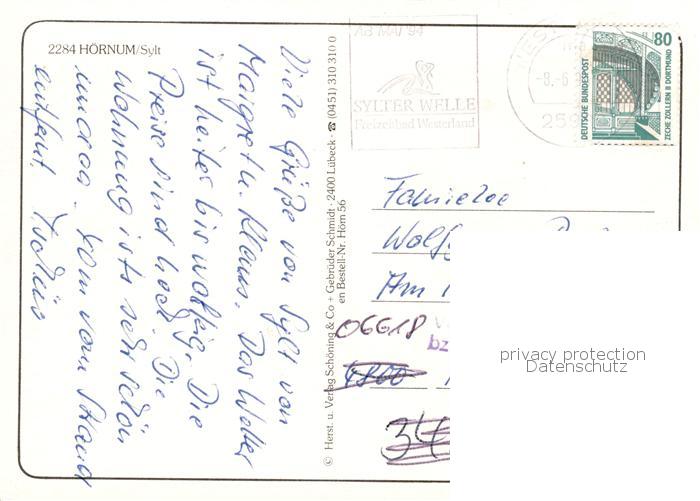 2284 HÖRNUM/Sylt
Viele Grüße von Sylt von
Margret u. Klaus. Das Wetter
ist heiter bis wolkig. Die
Preise sind hoch. Die
Wohnung ist sehr schön
und ca. 1 km vom Strand
entfernt.
© Herst. u. Verlag Schöning & Co + Gebrüder Schmidt · 2400 Lübeck · ☎ (0451) 310 310 0
en Bestell-Nr. Hörn 56
AB MAI '94
SYLTER WELLE
Freizeitbad Westerland
-8.-6
259
80
DEUTSCHE BUNDESPOST
ZECHE ZOLLERN II DORTMUND
Familie
Wolf
Am
06618
bz
4800
34
privacy protection
Datenschutz